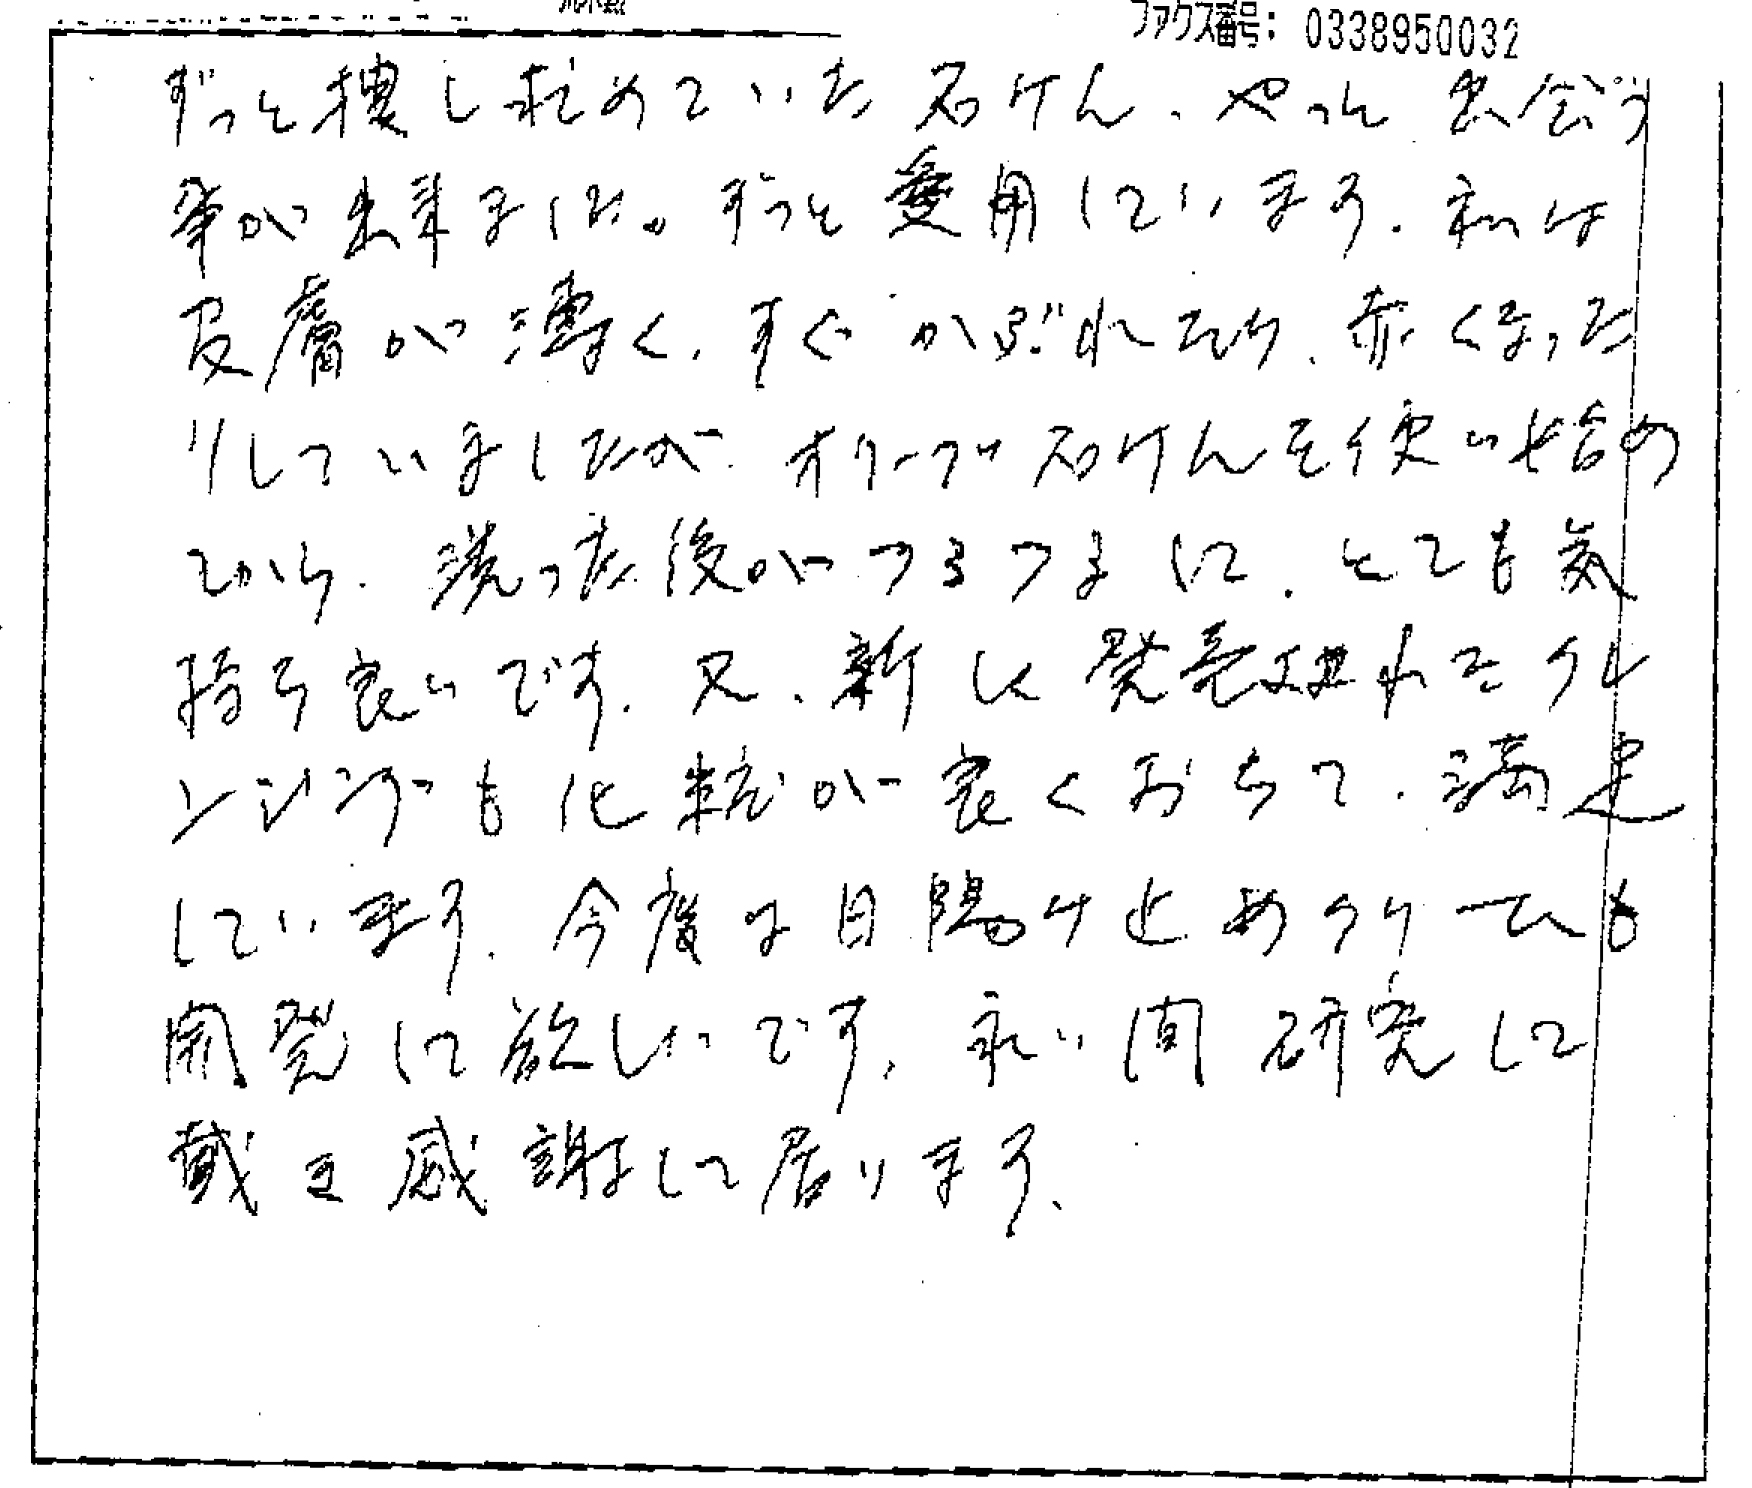 ファクス番号: 0338950032
ずっと捜し求めていた石けん、やっと出会う
事が出来ました。ずっと愛用しています。私は
皮膚が薄く、すぐかぶれたり、赤くなった
りしていましたが、オリーブ石けんを使い始め
てから、洗った後がつるつるして、とても気
持ち良いです。又、新しく発売されたクレ
ンジングも化粧が良くおちて、満足
しています。今度は日陽け止めクリームも
開発して欲しいです。永い間研究して
戴き感謝して居ります。